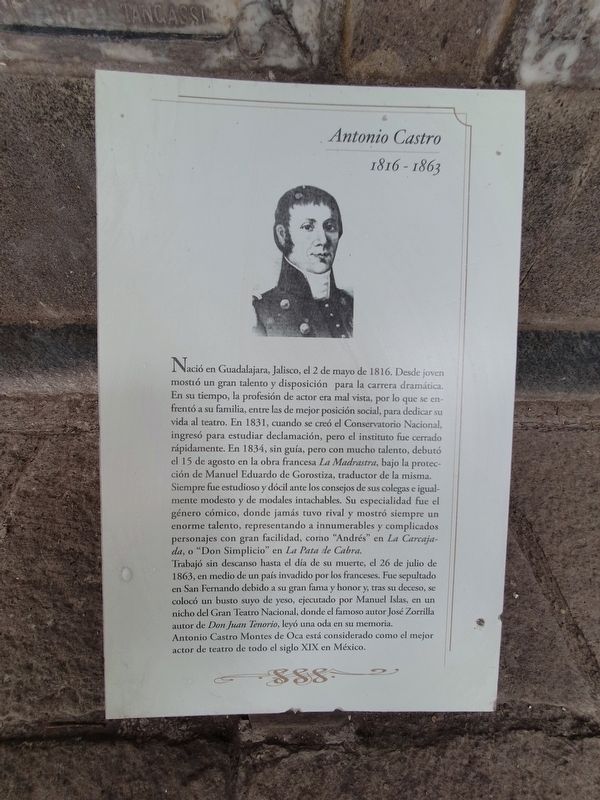 TANGASSI
Antonio Castro
1816 - 1863
Nació en Guadalajara, Jalisco, el 2 de mayo de 1816. Desde joven
mostró un gran talento y disposición para la carrera dramática.
En su tiempo, la profesión de actor era mal vista, por lo que se en-
frentó a su familia, entre las de mejor posición social, para dedicar su
vida al teatro. En 1831, cuando se creó el Conservatorio Nacional,
ingresó para estudiar declamación, pero el instituto fue cerrado
rápidamente. En 1834, sin guía, pero con mucho talento, debutó
el 15 de agosto en la obra francesa La Madrastra, bajo la protec-
ción de Manuel Eduardo de Gorostiza, traductor de la misma.
Siempre fue estudioso y dócil ante los consejos de sus colegas e igual-
mente modesto y de modales intachables. Su especialidad fue el
género cómico, donde jamás tuvo rival y mostró siempre un
enorme talento, representando a innumerables y complicados
personajes con gran facilidad, como “Andrés” en La Carcaja-
da, o “Don Simplicio” en La Pata de Cabra.
Trabajó sin descanso hasta el día de su muerte, el 26 de julio de
1863, en medio de un país invadido por los franceses. Fue sepultado
en San Fernando debido a su gran fama y honor y, tras su deceso, se
colocó un busto suyo de yeso, ejecutado por Manuel Islas, en un
nicho del Gran Teatro Nacional, donde el famoso autor José Zorrilla
autor de Don Juan Tenorio, leyó una oda en su memoria.
Antonio Castro Montes de Oca está considerado como el mejor
actor de teatro de todo el siglo XIX en México.